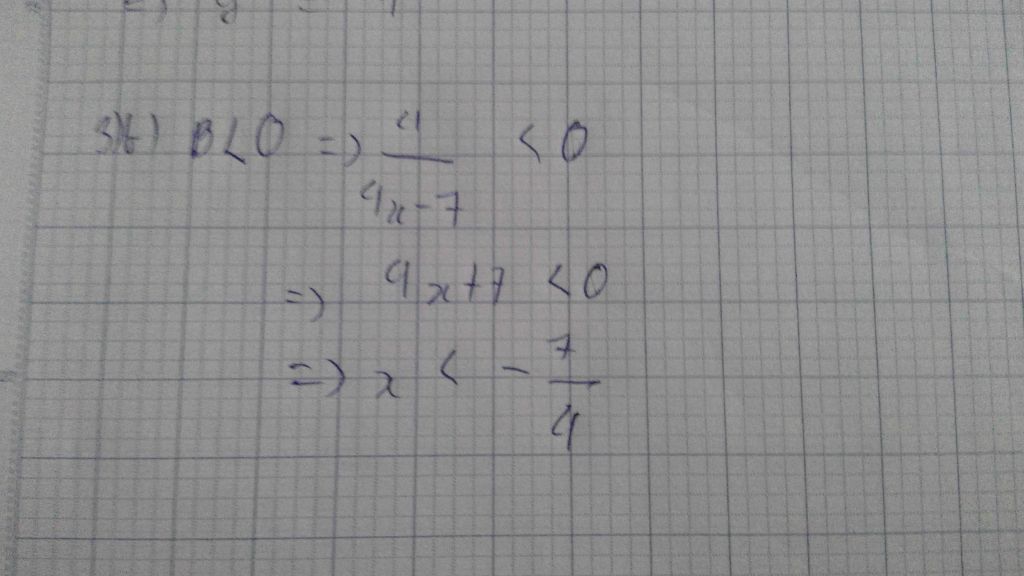 3)b) B < 0 => 4/(4x-7) < 0
=> 4x+7 < 0
=> x < - 7/4